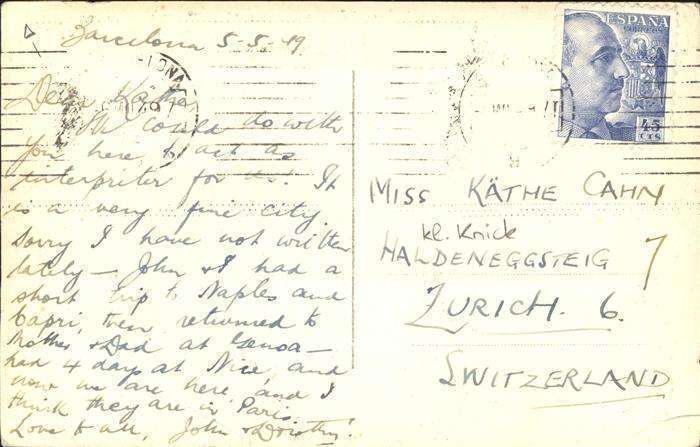 Barcelona 5-5-49
Dear Käthe,
We could do with
you here to act as
interpreter for us! It
is a very fine city.
Sorry I have not written
lately — John & I had a
short trip to Naples and
Capri, then returned to
Mother & Dad at Genoa —
had 4 days at Nice, and
now we are here, and I
think they are in Paris.
Love to all, John & Dorothy.
ESPAÑA
CORREOS
45
CTS
MISS KÄTHE CAHN
kl. Knick
HALDENEGGSTEIG 7
ZURICH. 6.
SWITZERLAND